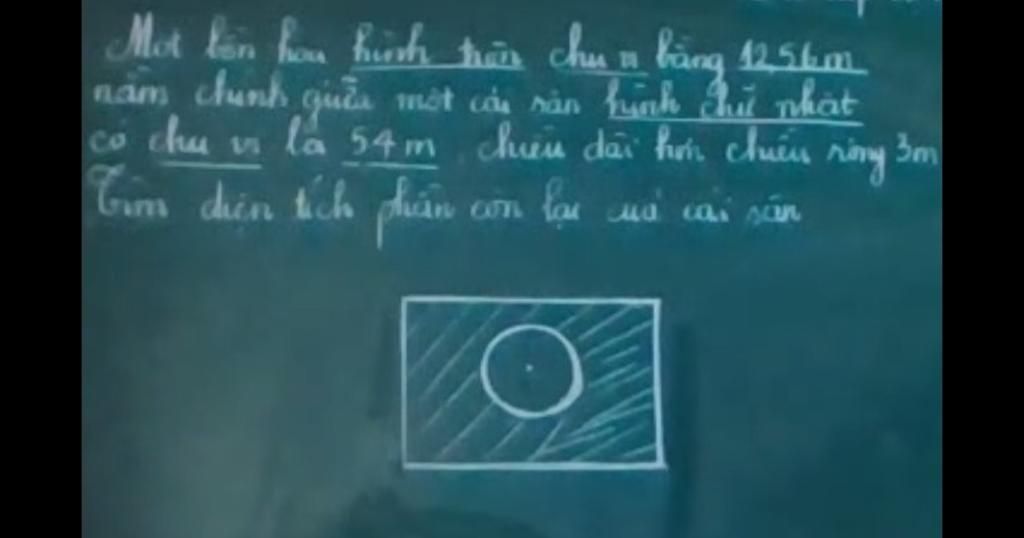 Một bồn hoa hình tròn chu vi bằng 12,56m
nằm chính giữa một cái sân hình chữ nhật
có chu vi là 54m chiều dài hơn chiều rộng 3m
Tìm diện tích phần còn lại của cái sân